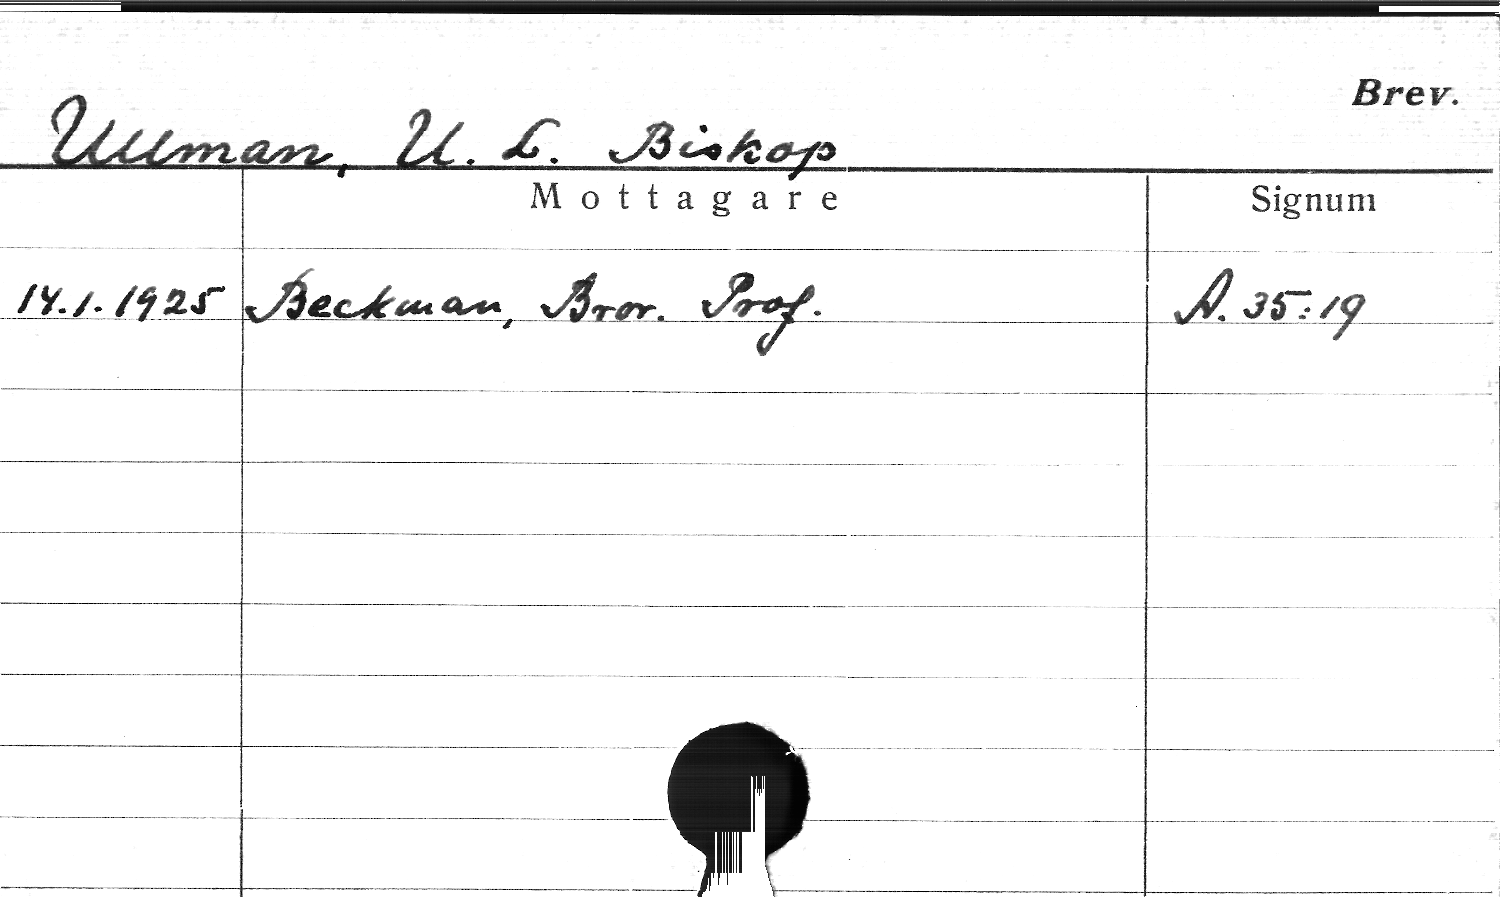 Brev.
Ullman, U. L. Biskop
Mottagare Signum
14.1.1925 Beckman, Bror. Prof. A. 35:19